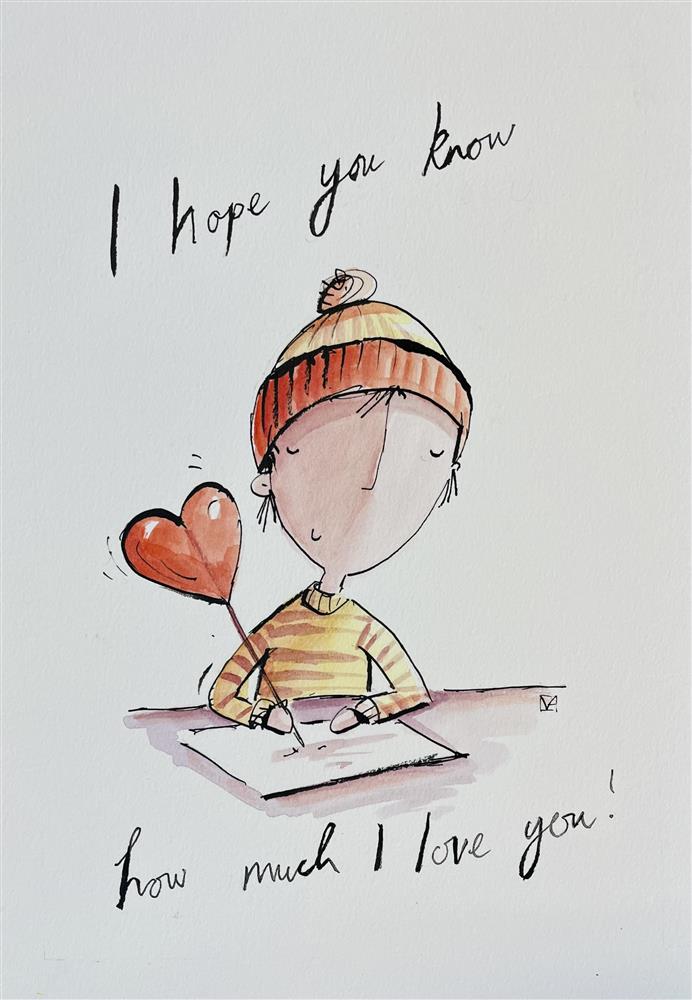 I hope you know
how much I love you!